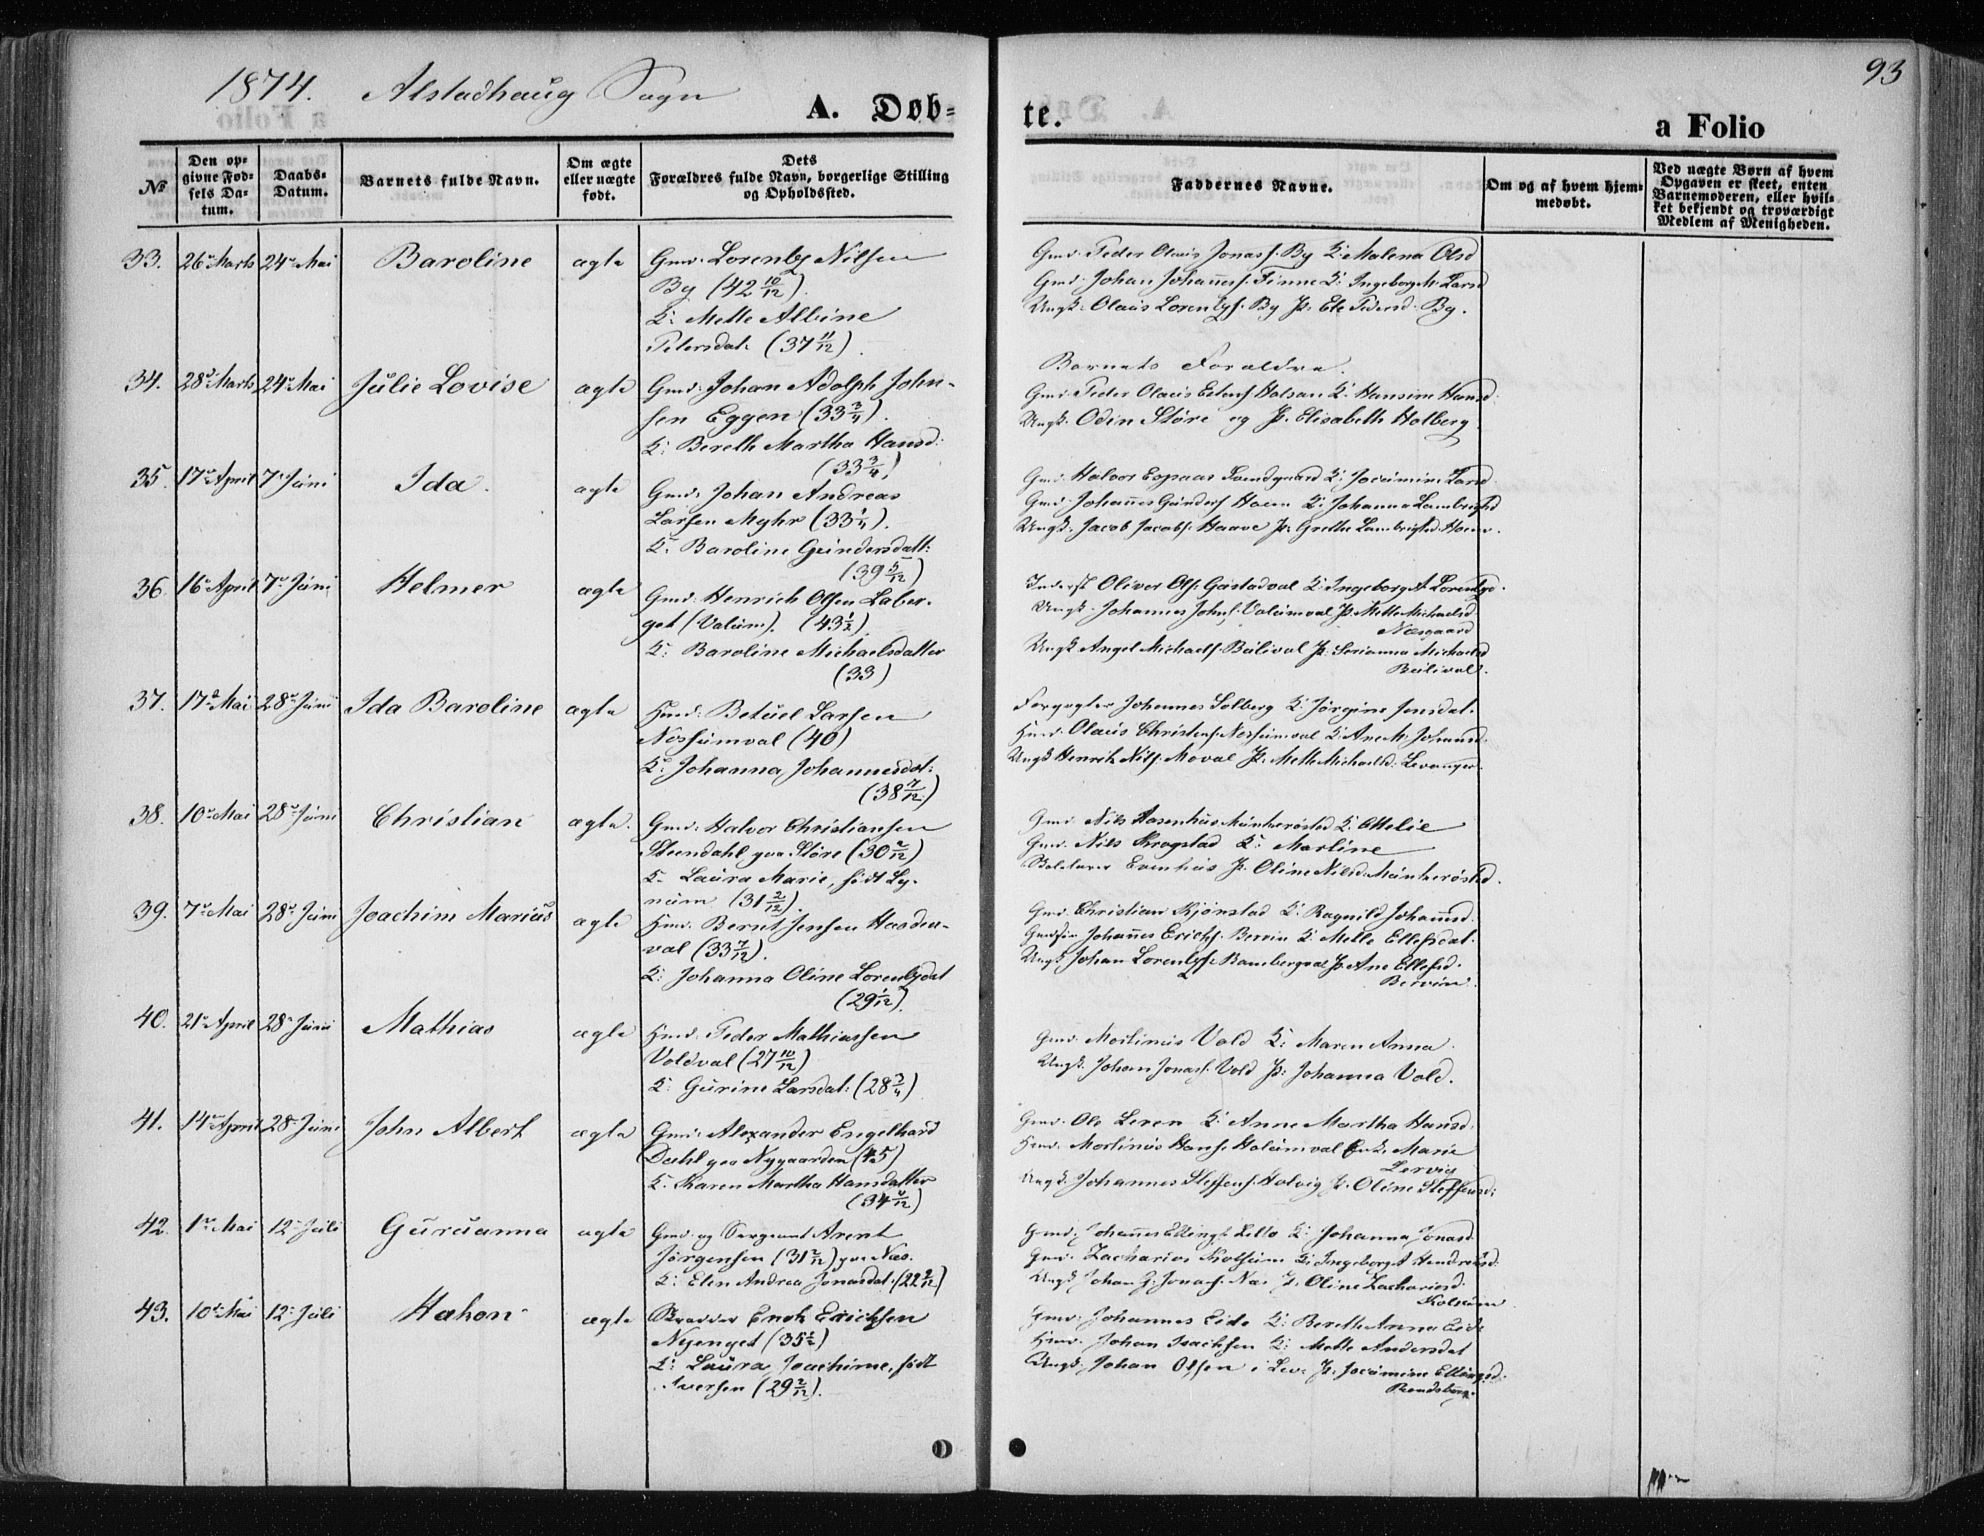 1874. Alstadhaug Sogn
A. Døb=
te.
93
a Folio
№
Den op=
givne Fød=
sels Da=
tum.
Daabs=
Datum.
Barnets fulde Navn.
Om ægte
eller uægte
født.
Dets
Forældres fulde Navn, borgerlige Stilling
og Opholdssted.
Faddernes Navne.
Om og af hvem hjem=
medøbt.
Ved uægte Børn af hvem
Opgaven er skeet, enten
Barnemoderen, eller hvil=
ket bekjendt og troværdigt
Medlem af Menigheden.
33. 26de Marts 24de Mai Baroline ægte Gmd. Lorentz Nilsen
By (42 10/12).
K: Mette Albine
Petersdat: (37 11/12).
Gmd. Peder Olaus Jonass. By K: Malena Olsd
Gmd. Johan Johanness. Finne K: Ingeborg M. Larsd
Ungk: Olaus Lorentzs. By P: Ele Pedersd. By.
34. 28de Marts 24de Mai Julie Lovise ægte Gmd: Johan Adolph John-
sen Eggen (33 3/4).
K: Bereth Martha Hansd:
(33 3/4)
Barnets Forældre.
Gmd. Peder Olaus Estens. Halsan K: Hansine Hansd:
Ungk. Odin Støre og P. Elisabeth Holberg
35. 17de April 7de Juni Ida. ægte Gmd. Johan Andreas
Larsen Myhr (33 1/4).
K. Baroline Gundersdatt:
(39 5/12)
Gmd. Halvor Kjønstad K: Larsd
Gmd. Johannes Gunders. Hoem K: Johanna Lambrigtsd
Ungk. Jacob Jacobs. Haave P: Grethe Lambrigtsd. Hoem.
36. 16de April 7de Juni Helmer ægte Gmd. Henrich Olsen Laber-
get (Valum). (43 1/2)
K: Baroline Michaelsdatter
(33)
Inderst Oliver Ols. Gustadval K: Ingeborg A. Lorentzd.
Ungk. Johannes Johns. Valumval P. Mette Michaelsd
Næsgaard
Ungk Angel Michaels. Bulival P: Serianna Michaelsd
Bulival.
37. 17de Mai 28de Juni Ida Baroline ægte Hmd: Betuel Larsen
Nossumval (40)
K: Johanna Johannesdat:
(38 7/12)
Forpagter Johannes Solberg K: Jørgine Jensdat.
Hmd. Olaus Christens. Nossumval K: Ane M. Johansd.
Ungk Henrik Nils. Moval P. Mette Michaelsd: Levanger.
38. 10de Mai 28de Juni Christian ægte. Gmd. Halvor Christiansen
Steendahl paa Støre (30 2/12)
K. Laura Marie, født Ly-
num (31 2/12).
Gmd. Nils Rosenhus Munkerøsted K. Ottelie
Gmd. Nils Krogstad K: Martine
Evenhus P. Oline Nilsd. Munkerøsted.
39. 7de Mai 28de Juni Joachim Marius ægte Hmd. Bernt Jensen Hasden-
val (33 7/12).
K: Johanna Oline Lorentzdat
(29 1/12).
Gmd. Christian Kjønstad K: Ragnild Johannsd.
Johannes Erichs. Berrin K: Mette Ellefsdat.
Ungk Johan Lorentzs. Rambergval P: Ane Ellefsd.
Berrin.
40. 21de April 28de Juni Mathias ægte Hmd. Peder Mathiassen
Voldval (27 10/12)
K. Gurine Larsdat: (28 3/4)
Gmd. Mortinus Vold K: Maren Anna.
Ungk. Johan Jonass. Vold P: Johanna Vold.
41. 14de April 28de Juni John Albert ægte Gmd: Alexander Engelhard
Dahl paa Nygaarden (45)
K. Karen Martha Hansdatter
(34 4/12)
Gmd. Ole Leren K: Anne Martha Hansd.
Hmd. Mortinus Hans. Halumval Marie
Lervig
Ungk. Johannes Steffens. Holvig P. Oline Steffensd:
42. 1ste Mai 12te Juli Guruanna ægte Gmd. og Sergeant Arent
Jørgensen (31 2/12) paa Næs.
K: Elen Andrea Jonasdat: (22 9/12)
Gmd: Johannes K: Johanna Jonasd.
Gmd. Zacharias Kolsum K: Ingeborg A.
Ungk Johan G. Jonass. Næs P. Oline Zachariasd.
Kolsum
43. 10de Mai 12te Juli Hakon ægte Enok Erichsen
Nyenget (35 1/2)
K: Laura Joachime, født
Iversen (29 2/12).
Gmd. Johannes Eide K: Bereth Anna Eide
Hmd. Johan Isachsen K: Mette Andersdat
Ungk. Johan Olsen i Lev. P. Ellingsd.